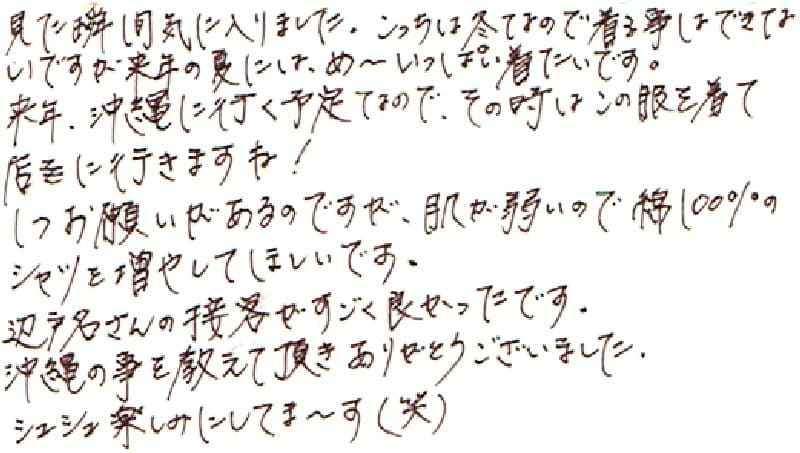 見た瞬間気に入りました。こっちは冬なので着る事はできな
いですが来年の夏には、め〜いっぱい着たいです。
来年、沖縄に行く予定なので、その時はこの服を着て
店に行きますね！
1つお願いがあるのですが、肌が弱いので綿100%の
シャツを増やしてほしいです。
辺戸名さんの接客がすごく良かったです。
沖縄の事を教えて頂きありがとうございました。
シュシュ楽しみにしてま〜す(笑)